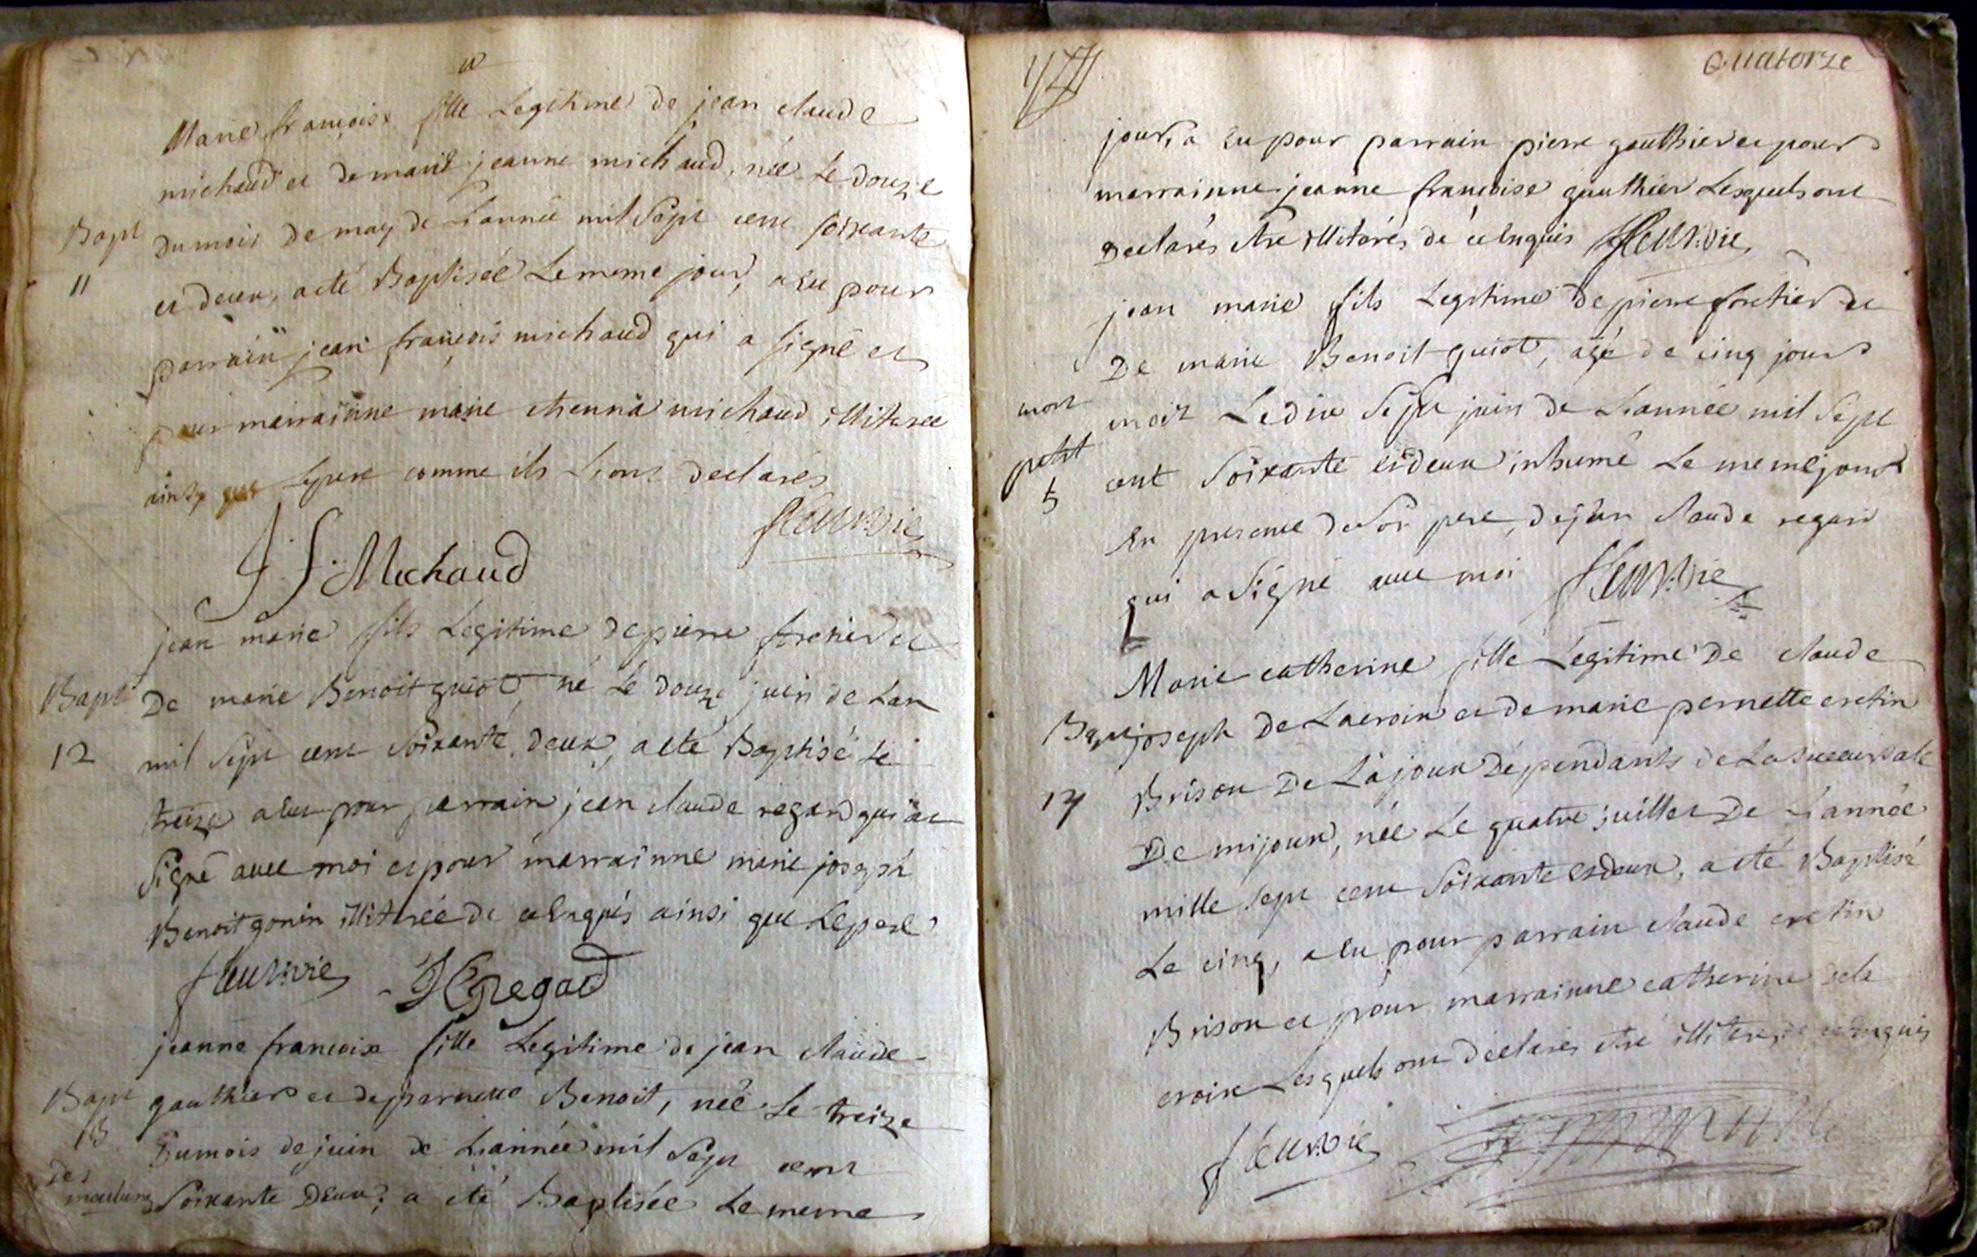 Marie françoise fille Legitime de jean claude
michaud et de marie jeanne michaud, née Le douze
Bapt
du mois de may de Lannée mil Sept cent soixante
11
et deux, a été Baptisée Le meme jour, a eu pour
parrain jean françois michaud qui a signé et
pour marrainne marie etienna michaud illiterée
ainsy que le pere comme ils Lont declarés
fleurvie
J. f. Michaud
jean marie fils Legitime de pierre forétier et
Bapt
De marie Benoit guiot, né Le douze juin de Lan
12
mil Sept cent Soixante deux, a été Baptisé le
treize a eu pour parrain jean claude regard qui at
Signé avec moi et pour marrainne marie joseph
Benoit gonin illiterée de ce Enquis ainsi que Le pere
fleurvie J C regad
jeanne francoise fille Legitime de jean claude
Bapt
gauthier et de pernette Benoit, née Le treize
13
Dumois de juin de Lannée mil Sept cent
des
moulins
Soixante Deux, a été Baptisée Le meme
quatorze
jour, a eu pour parrain pierre gauthier et pour
marrainne jeanne françoise gauthier Lesquels ont
Declarés etre illiterés de ce Enquis fleurvie
jean marie fils Legitime de pierre foretier et
De marie Benoit guiot, agé de cinq jours
mort
mort Le dix Sept juin de Lannée mil Sept
petit
5
cent Soixante et deux inhumé Le meme jour
En presence de Son pere, de jean claude regard
qui a Signé avec moi fleurvie
Marie catherine fille Legitime De claude
Bapt
joseph De Lacroix et de marie pernette cretin
14
Brison De Lajoux Dépendants de La succursale
De mijoux, née Le quatre juillet De Lannée
mille sept cent Soixante et deux, a été Baptisé
Le cinq, a eu pour parrain claude cretin
Brison et pour marrainne catherine dela
croix Lesquels ont declarés etre illiterés de ce Enquis
fleurvie